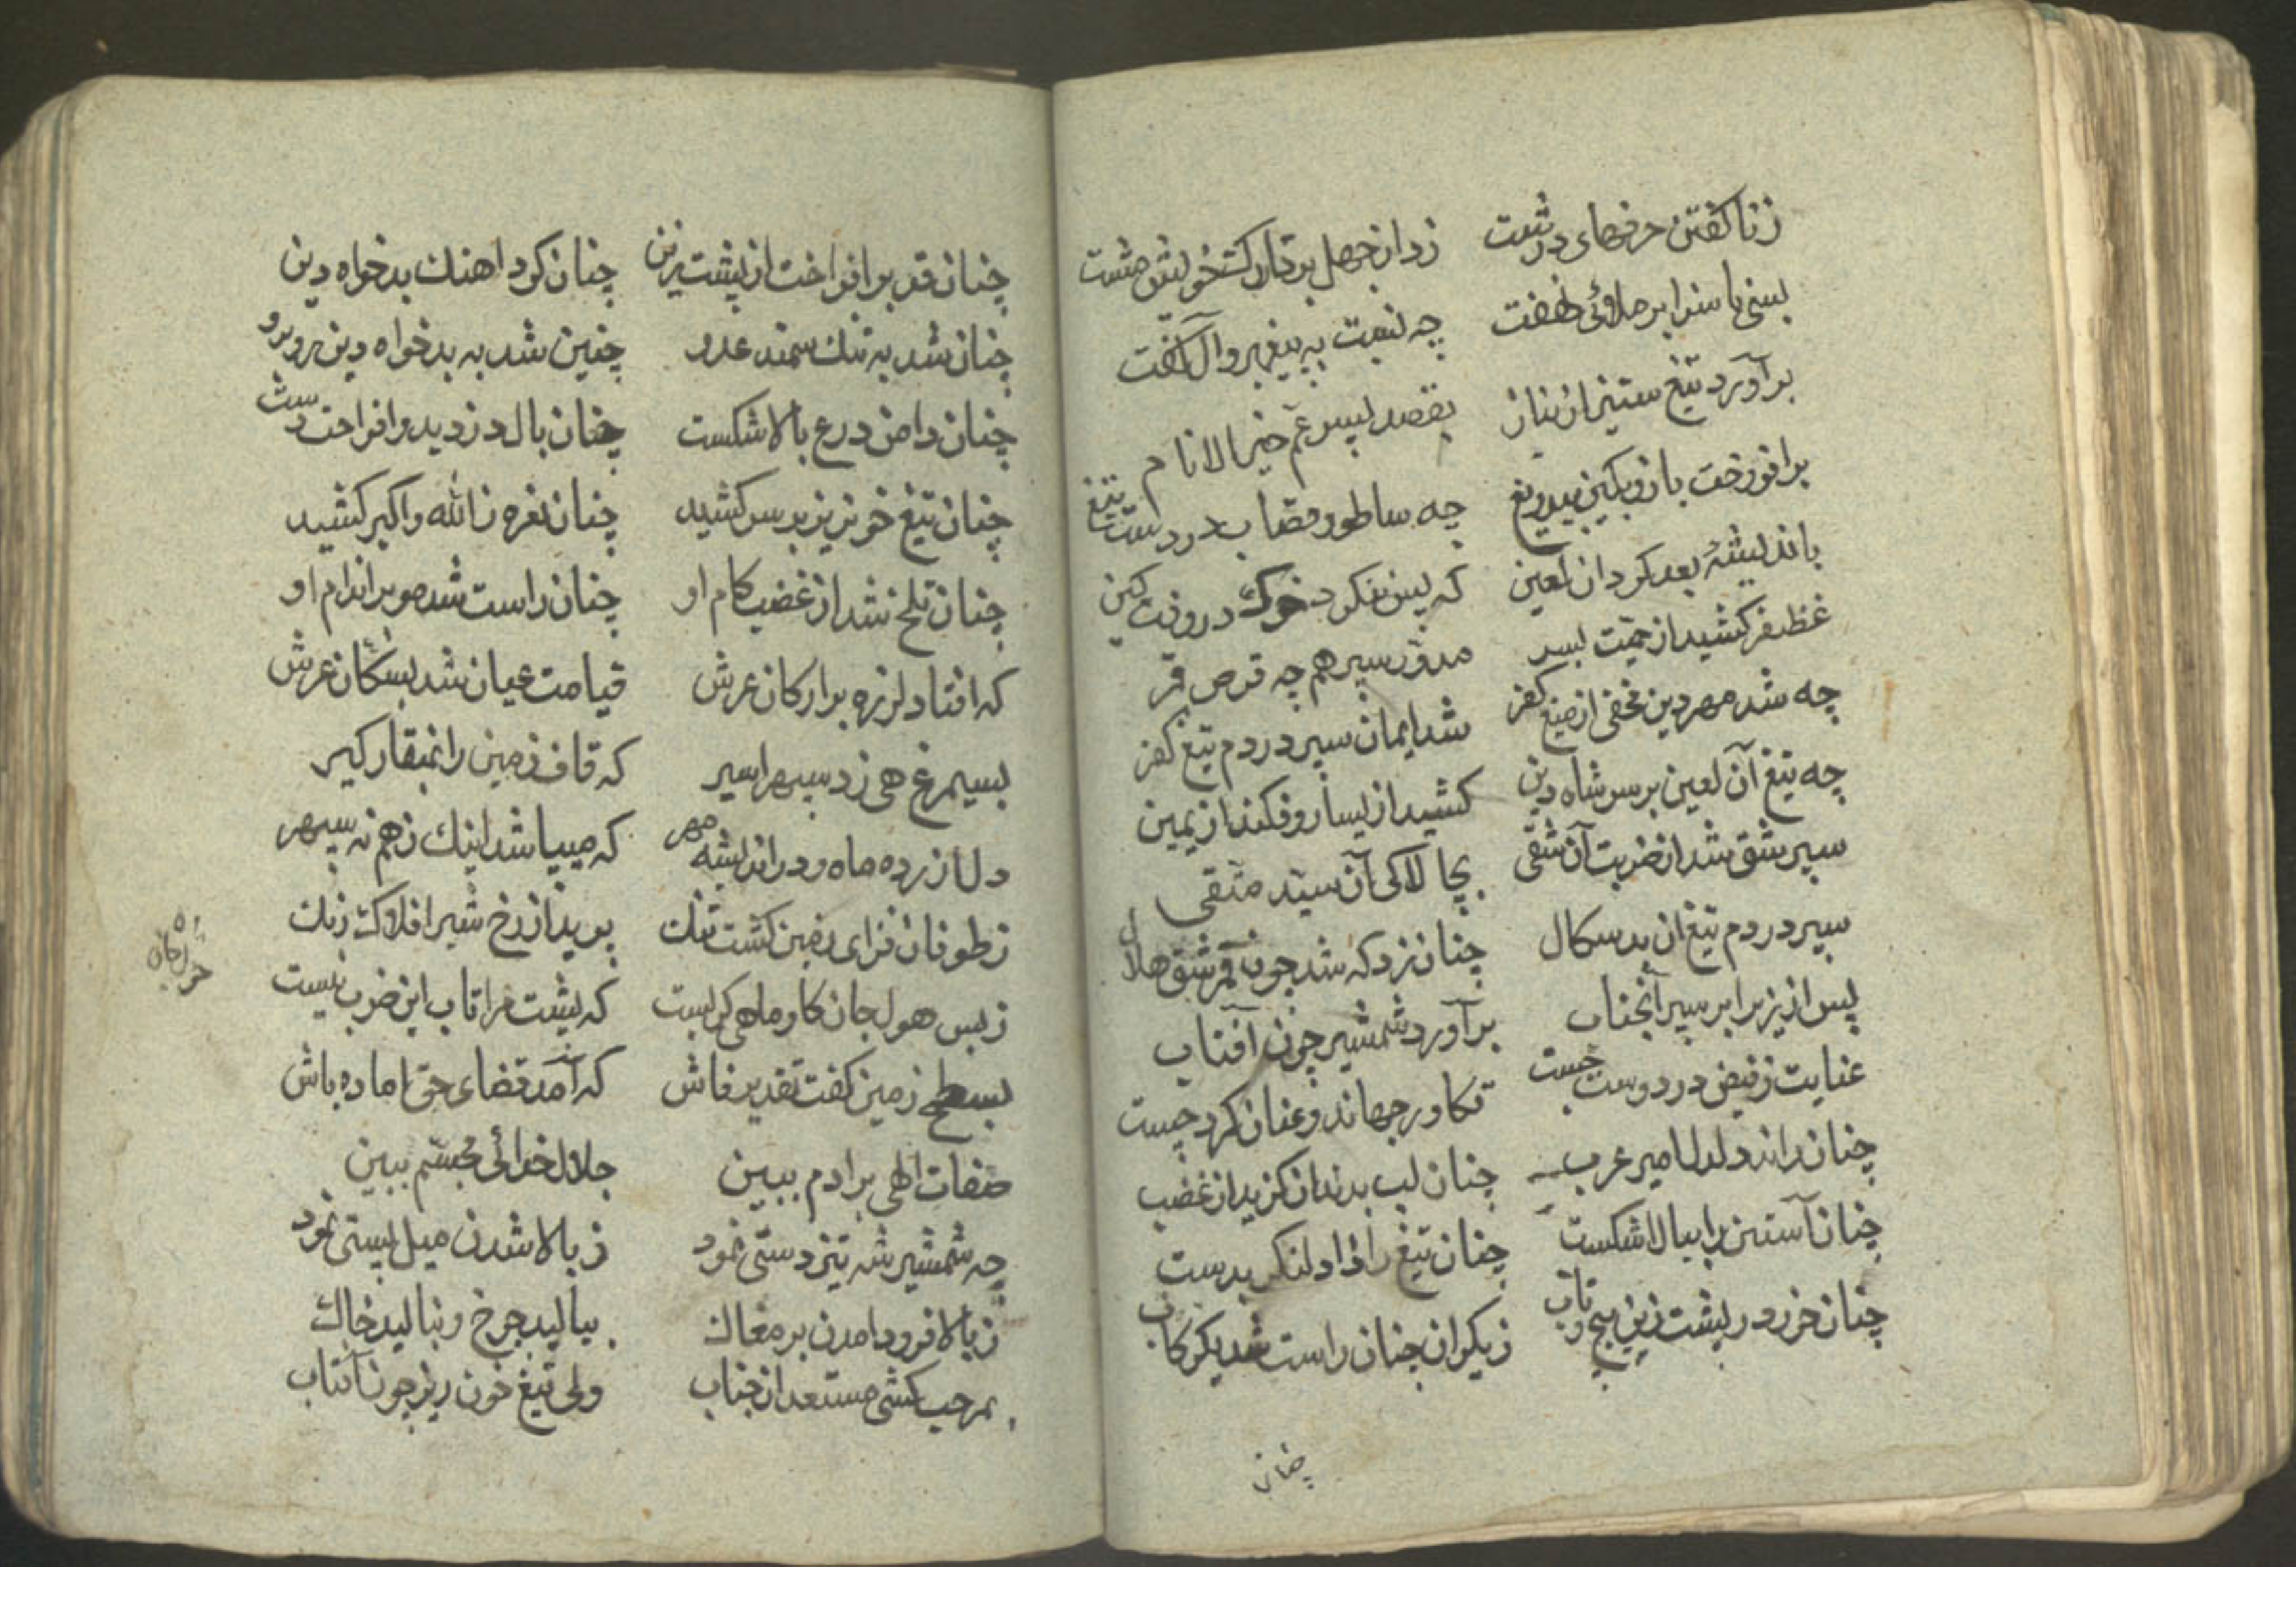 زناکفتن حرفهای درشت زد از جهل بر تارک خویش مشت
بسی ناسزا بر ملا وٰ خفت چه نسبت به پیغمبر و آل گفت
برآورد تیغ ستیز از نیاز بقصد پسر عم خیر الانام
برافروخت بازو بکین بیدریغ چه ساطور قصاب در دست تیغ
باندیشهٔ بعد کرد آن لعین که پس ننکرد خوک در وقت کین
غظنفر کشید از حمیت بسر مدوّر سپر هم چه قرص قمر
چه شد مهر دین مخفی از میغ کفر شد ایمان سپر در دم تیغ کفر
چه تیغ آن لعین بر سر شاه دین کشید از یسار و فکند از یمین
سپر شق شد از ضربت آن شقی بچالاکی آن سید متقی
سپر در دم تیغ ان بدسکال چنان زد که شد چون قمر شق هلال
پس از یر برابر سپر آنجناب برآورد شمشیر چون آفتاب
عنایت ز فیض در دوست جست تکاور جهاند و عنان کرد چست
چنان راند دلدل امیر عرب چنان لب بدندان کزید از غضب
چنان آستین را ببالا شکست چنان تیغ را داد لنکر بدست
چنان خورد در پشت زین پیچ و تاب ز یکران چنان راست شد یکرکاب
چنان
چنان قد برافراخت از پشت زین چنان کرد اهنک بدخواه دین
چنان شد به تنک سمند عدو چنین شد به بدخواه دین روبرو
چنان دامن درع بالا شکست چنان بال دزدید و افراخت دست
چنان تیغ خونریز بر سر کشید چنان نعره ز الله و اکبر کشید
چنان تلخ شد از غضب کام او چنان راست شد مو بر اندام او
که افتاد لرزه بر ارکان عرش قیامت عیان شد بسکان عرش
بسیمرغ هی زد سپهر اسیر که قاف زمین را بمنقار کیر
دل ازرده ماه و در اندیشه مهر که میپاشد اینک ز هم نه سپهر
ز طوفان فزای زمین کشت تنک پرید از رخ شیر افلاک رنک
ز بس هول جان کاو ماهی کریست که پشت مرا تاب این ضرب نیست
بسطح زمین کفت تقدیر فاش که آمد قضای حق اماده باش
صفات الهی بر ادم ببین جلال خدائی مجسم ببین
چه شمشیر شه تیز دستی نمود ز بالا شدن میل پستی نمود
ز بالا فرود امدن بر مغاک ببالید چرخ و بنالید خاک
بمرحب کشی مستعد انجناب ولی تیغ خون ریز چون آفتاب